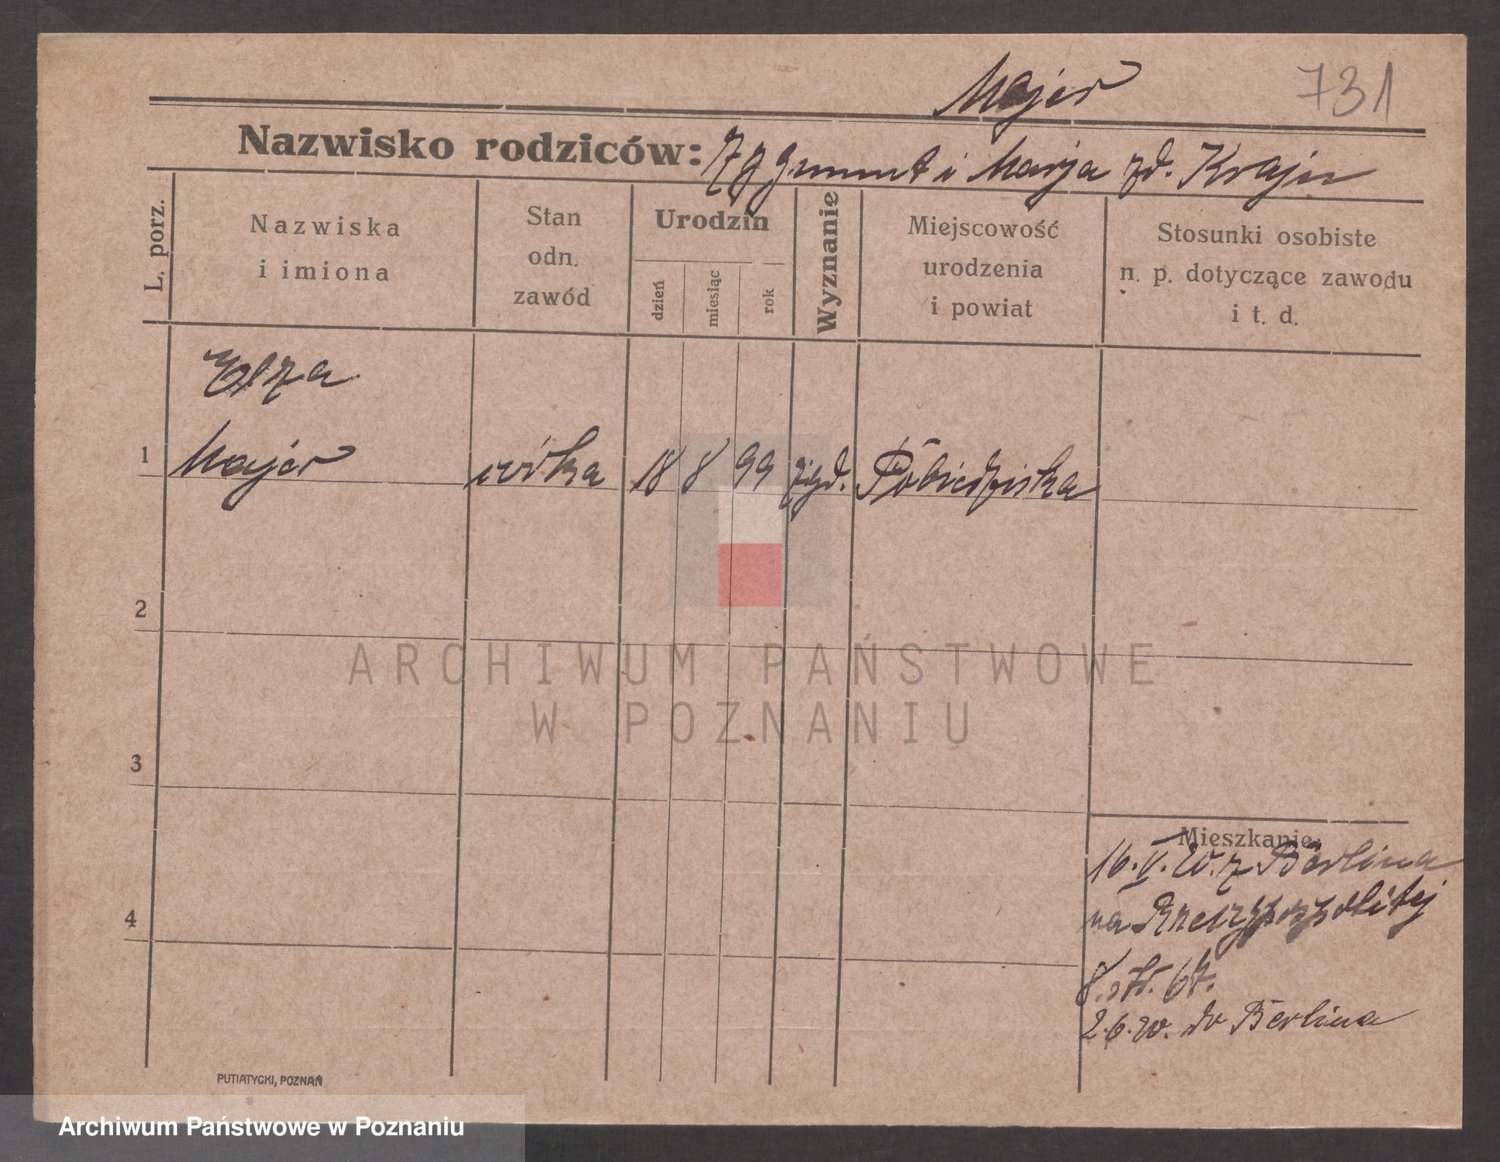 Majer
731
Nazwisko rodziców: Zygmunt i Marja zd. Krajn
L. porz.
Nazwiska
i imiona
Stan
odn.
zawód
Urodzin
dzień
miesiąc
rok
Wyznanie
Miejscowość
urodzenia
i powiat
Stosunki osobiste
n. p. dotyczące zawodu
i t. d.
Elza
1 Majer córka 18 8 99 Pobiedziska
2
3
4
Mieszkanie:
16.V.20. z Berlina
na Rzeczypospolitej
8.
2.6.20. do Berlina
PUTIATYCKI, POZNAŃ
ARCHIWUM PAŃSTWOWE
W POZNANIU
Archiwum Państwowe w Poznaniu